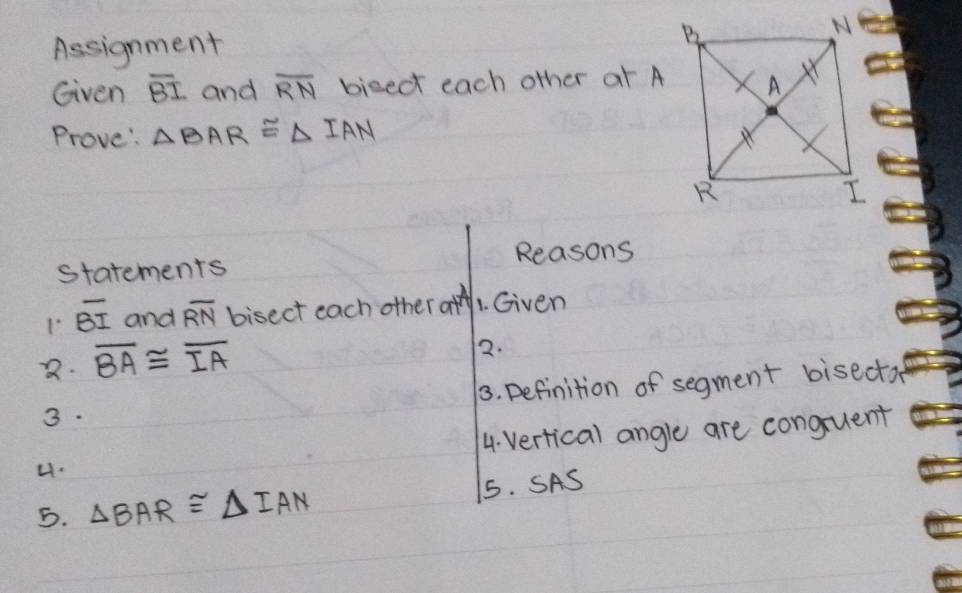 Assignment
Given BI and RN bisect each other at A
Prove: △BAR ≅ △ IAN
B
N
A
R
I
Statements
Reasons
1. BI and RN bisect each other at A
1. Given
2. BA ≅ IA
2.
3.
3. Definition of segment bisector
4.
4. Vertical angle are congruent
5. △BAR ≅ △IAN
5. SAS